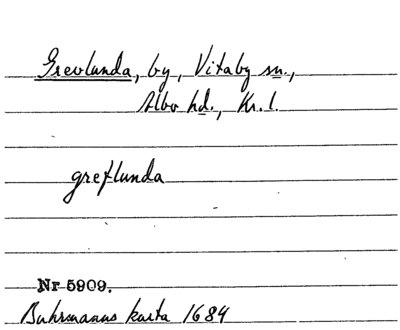 Grevlunda, by, Vitaby sn.,
Albo hd., Kr. l.
greflunda
Nr 5909.
Buhrmanns karta 1684